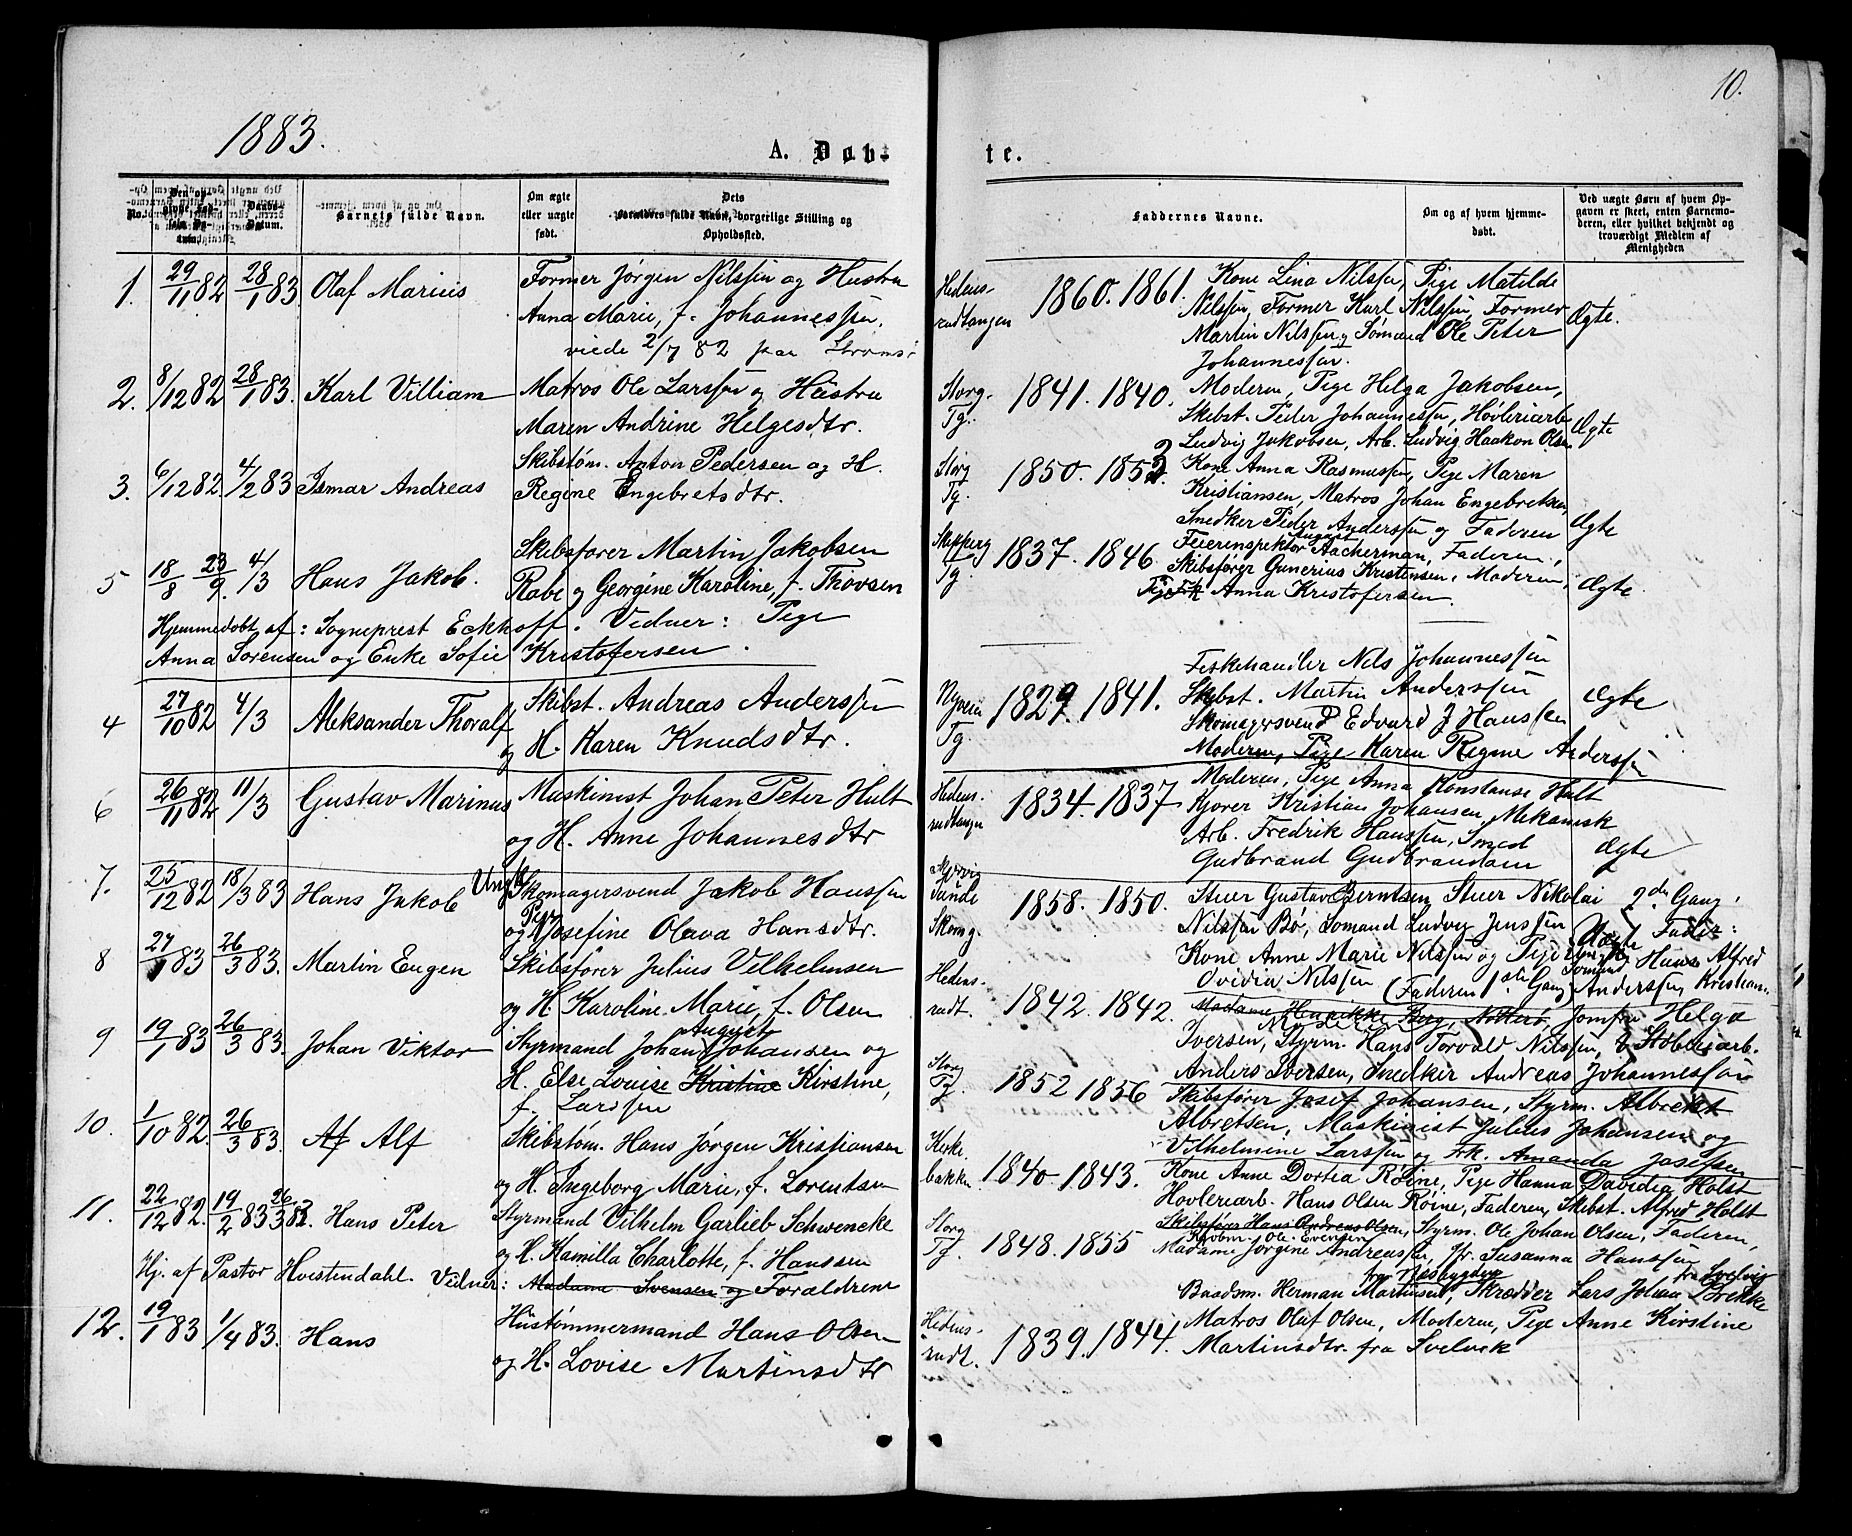 10.
1883.
A. Døb-
te.
No.
Barnets fulde Navn.
Om ægte eller uægte født.
Dets Forældres fulde Navn, borgerlige Stilling og Opholdssted.
Faddernes Navne.
Om og af hvem hjemme-døbt.
Ved uægte Børn af hvem Op-gaven er skeet, enten Barnemo-deren, eller hvilket bekjendt og troværdigt Medlem af Menigheden
1. 29/11 82 28/1 83 Olaf Marius Former Jørgen Nilssen og Hustru
Anna Marie, f. Johannessen.
viede 2/7 82 paa Strømsø
Hedens-
rudtangen 1860. 1861. Kone Lina Nilssen, Pige Matilde
Nilssen, Former Karl Nilssen, Former
Martin Nilssen og Sømand Ole Peter
Johannessen. Ægte.
2. 8/12 82 28/1 83. Karl Villiam Matros Ole Larssen og Hustru
Maren Andrine Helgesdtr.
Storg.
Tg. 1841. 1840. Moderen, Pige Helga Jakobsen,
Skibst. Peder Johannessen, Høvleriarb.
Ludvig Jakobsen, Arb. Ludvig Haakon Olsen Ægte
3. 6/12 82. 4/2 83 Ismar Andreas Skibstøm. Anton Pedersen og H.
Regine Engebretsdtr.
Storg
Tg. 1850. 1852 Kone Anna Rasmussen, Pige Maren
Kristiansen, Matros Johan Engebretsen,
Snedker Peder Anderssen og Faderen Ægte
5 18/8 23/9. 4/3 Hans Jakob. Skibsfører Martin Jakobsen
Rabe og Georgine Karoline, f. Thovsen
Hjemmedøbt af: Sogneprest Eckhoff. Vidner: Pige
Anna Sørensen og Enke Sofie Kristofersen.
Tg. 1837. 1846. Feierinspektør August Aacherman, Faderen,
Skibsfører Gunerius Kristensen, Moderen,
Anna Kristofersen. Ægte.
4 27/10 82 4/3 Aleksander Thoralf Skibst. Andreas Anderssen
og H. Karen Knudsdtr.
Tg. 1829. 1841. Fiskehandler Nils Johannessen
Skibst. Martin Anderssen
Skomagersvend Edvard J Hanssen
Moderen, Pige Karen Regine Anderssen Ægte
6 26/11 82 11/3 Gustav Marinus Maskinist Johan Peter Hult
og H. Anne Johannesdtr
Hedens-
rudtangen 1834. 1837 Moderen, Pige Anna Konstanse Hult
Kjører Kristian Johansen, Mekanisk
Arb. Fredrik Hanssen, Smed
Gudbrand Gudbrandsen Ægte
7. 25/12 82 18/3 83 Hans Jakob Ungk. Skomagersvend Jakob Hanssen
og Pige Josefine Olava Hansdtr.
1858. 1850. Stuer Gustav Berntsen Stuer Nikolai
Nilssen Bø, Sømand Ludvig Jenssen
Kone Anne Marie Nilssen og Pige
Ovidia Nilssen (Faderen 1ste Gang) Uægte 2den Gang.
Fader:
Sømand Hans Alfred
Anderssen, Kristian.
8 27/1 83 26/3 83. Martin Eugen Skibsfører Julius Vilhelmsen
og H. Karoline Marie, f. Olsen
Hedens-
rudt. 1842. 1842. Madame Henrikke Berg, Nøtterø, Jomfru Helga
Iversen, Styrm. Hans Torvald Nilssen, Støberiarb.
Anders Iversen, Snedker Andreas Johannessen
9 19/1 83 26/3 83. Johan Viktor Styrmand Johan August Johansen og
H. Else Lovise Kristine Kirstine,
f. Larssen
Storg
Tg. 1852 1856 Skibsfører Josef Johansen, Styrm. Albrekt
Albretsen, Maskinist Julius Johansen og
Vilhelmine Larssen og Frk. Amanda Josefsen
10. 1/10 82. 26/3 83. Af Alf Skibstøm. Hans Jørgen Kristiansen
og H. Ingeborg Marie, f. Lorentsen
Kirke-
bakken 1840. 1843. Kone Anne Dortea Røine, Pige Hanna Davidia Holst
Høvleriarb. Hans Olsen Røine, Faderen, Skibst. Alfred Holst
11. 22/12 82. 19/2 83 26/3 83. Hans Peter Styrmand Vilhelm Garlieb Schwencke
og H. Kamilla Charlotte, f. Hanssen
Hj. af Pastor Hvistendahl. Vidner: Madame Svensen og Forældrene
Storg
Tg. 1848. 1855 Skibsfører Hans Andreas Olsen, Styrm. Ole Johan Olsen, Faderen,
Kjøbm. Ole Evensen
Madame Jørgine Andreassen, Jfr. Susanna Hanssen
12. 19/1 83 1/4 83. Hans Hustømmermand Hans Olsen
og H. Lovise Martinsdtr
Hedens-
rudt. 1839. 1844. Baadsm. Herman Martinsen fra Nesbygden, Skrædder Lars Johan Brekke fra Svelvig
Matros Olaf Olsen, Moderen, Pige Anne Kirstine
Martinsdtr. fra Svelvik